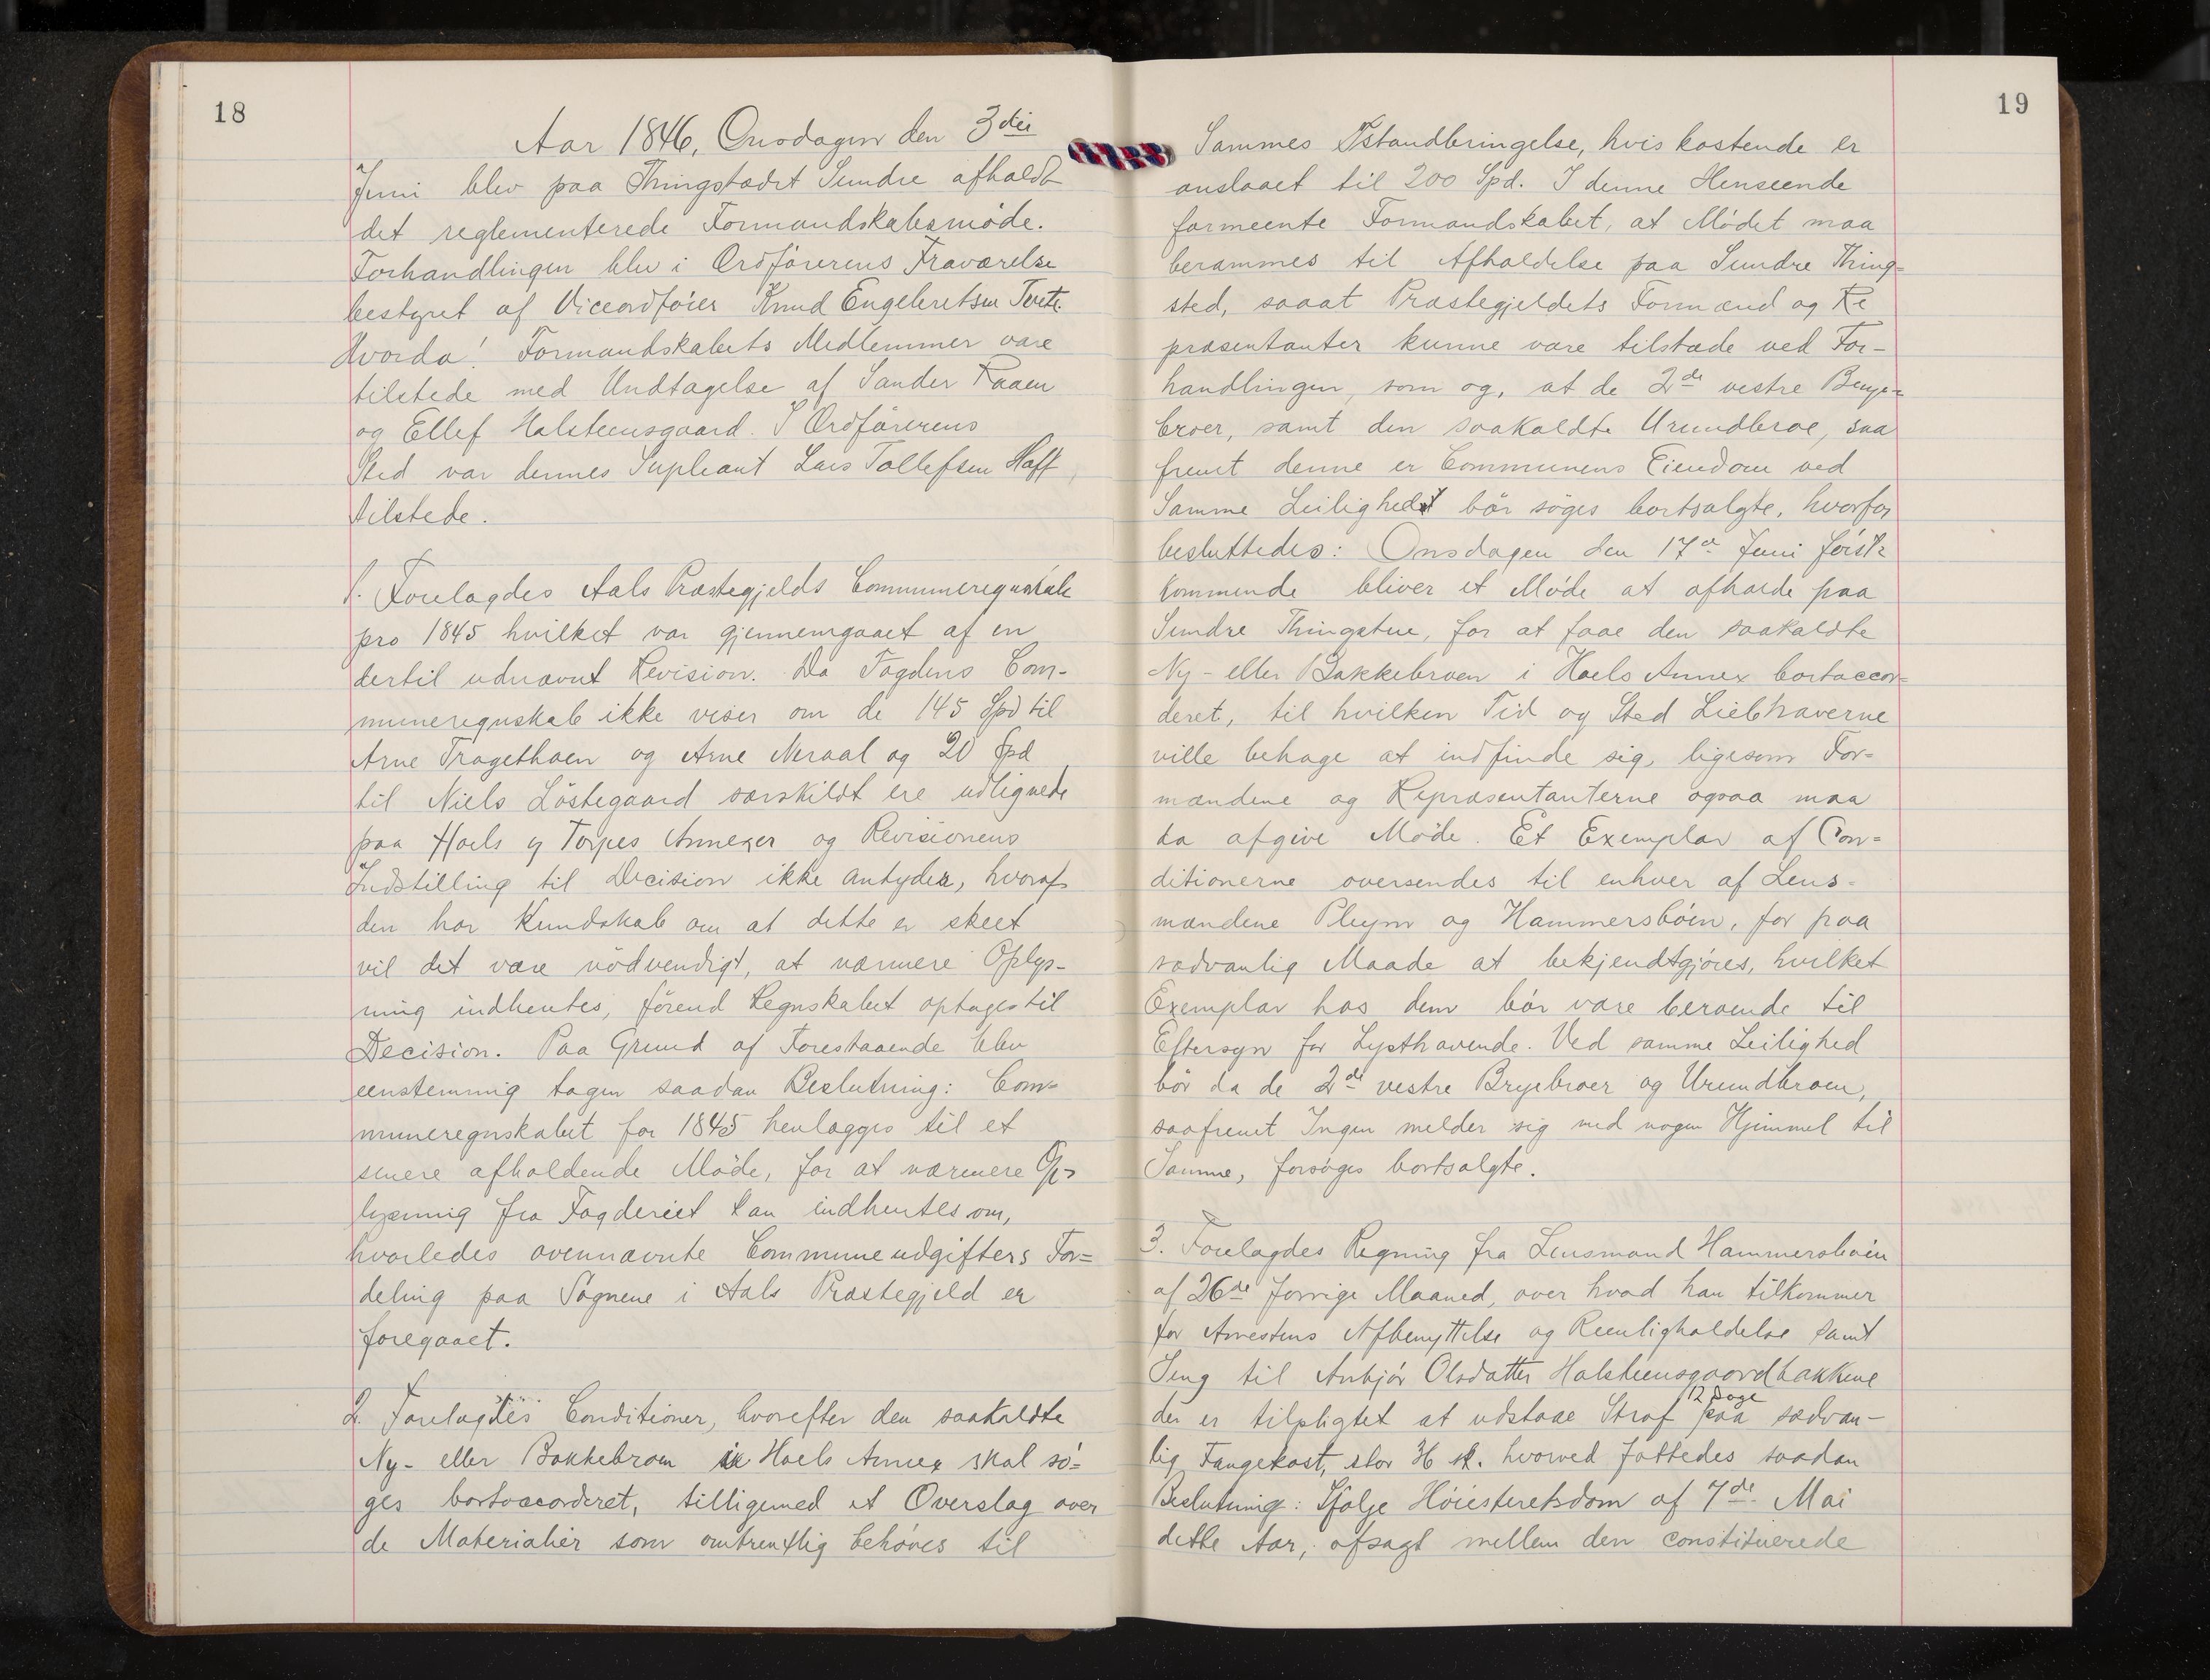 18
Aar 1846, Onsdagen den 3die
Juni blev paa Thingstædet Sundre afholdt
det reglementerede Formandskabsmøde.
Forhandlingen blev i Ordførerens Fraværelse
bestyret af Viceordfører Knud Engebretsen Tveite.
Hvorda! Formandskabets Medlemmer vare
tilstede med Undtagelse af Sander Raaen
og Ellef Halsteensgaard. I Ordførerens
Sted var dennes Supleant Lars Tollefsen Haft,
tilstede.
1. Forelagdes Aals Præstegjelds Communeregnskab
pro 1845 hvilket var gjennemgaaet af en
dertil udnævnt Revision. Da Fogdens Com-
muneregnskab ikke viser om de 145 Spd til
Arne Tragethaen og Arne Neraal og 20 Spd
til Niels Løstegaard særskildt ere udlignede
paa Hols og Torpes Annexer og Revisionens
Indstilling til Decision ikke antyder, hvoraf
den har Kundskab om at dette er skeet
vil det være nødvendigt, at nærmere Oplys-
ning indhentes, førend Regnskabet optages til
Decision. Paa Grund af Forestaaende blev
eenstemmig tagen saadan Beslutning: Com-
muneregnskabet for 1845 henlægges til et
senere afholdende Møde, for at nærmere Op-
lysning fra Fogderiet kan indhentes om,
hvorledes ovennævnte Communeudgifters For=
deling paa Sognene i Aals Præstegjeld er
foregaaet.
2. Forelagdes Conditioner, hvorefter den saakaldte
Ny- eller Bakkebroen i Hoels Annex skal sø-
ges bortaccorderet, tilligemed et Overslag over
de Materialier som omtrentlig behøves til
19
Sammes Istandbringelse, hvis kostende er
anslaaet til 200 Spd. I denne Henseende
formeente Formandskabet, at Mødet maa
berammes til Afholdelse paa Sundre Thing=
sted, saaat Præstegjeldets Formænd og Re
præsentanter kunne være tilstæde ved For-
handlingen, som og, at de 2de vestre Brye=
broer, samt den saakaldte Urundbroe, saa
fremt denne er Communens Eiendom ved
Samme Leilighed bør søges bortsolgte, hvorfor
besluttedes: Onsdagen den 17de Juni først
kommende bliver et Møde at afholde paa
Sundre Thingstue, for at faae den saakaldte
Ny- eller Bakkebroen i Hoels Annex bortaccor=
deret, til hvilken Tid og Sted Liebhaverne
ville behage at indfinde sig, ligesom For=
mændene og Repræsentanterne ogsaa maa
da afgive Møde. Et Exemplar af Con=
ditionerne oversendes til enhver af Lens-
mændene Pleym og Hammersbøen, for paa
sædvanlig Maade at bekjendtgjøres, hvilket
Exemplar hos dem bør være beroende til
Eftersyn for Lysthavende. Ved samme Leilighed
bør da de 2de vestre Bryebroer og Urundbroen,
saafremt Ingen melder sig med nogen Hjemmel til
Samme, forsøges bortsolgte.
3. Forelagdes Regning fra Lensmand Hammersbøen
af 26de forrige Maaned, over hvad han tilkommer
for Arrestens Afbenyttelse og Reenligholdelse samt
Seng til Anbjør Olsdatter Halsteensgaardbakkene
der er tilpligtet at udstaae Straf 12 Dage paa sædvan-
lig Fangekost, stor 36 sk. hvorved fattedes saadan
Beslutning: Ifølge Høiesteretsdom af 7de Mai
dette Aar, afsagt mellem den constituerede